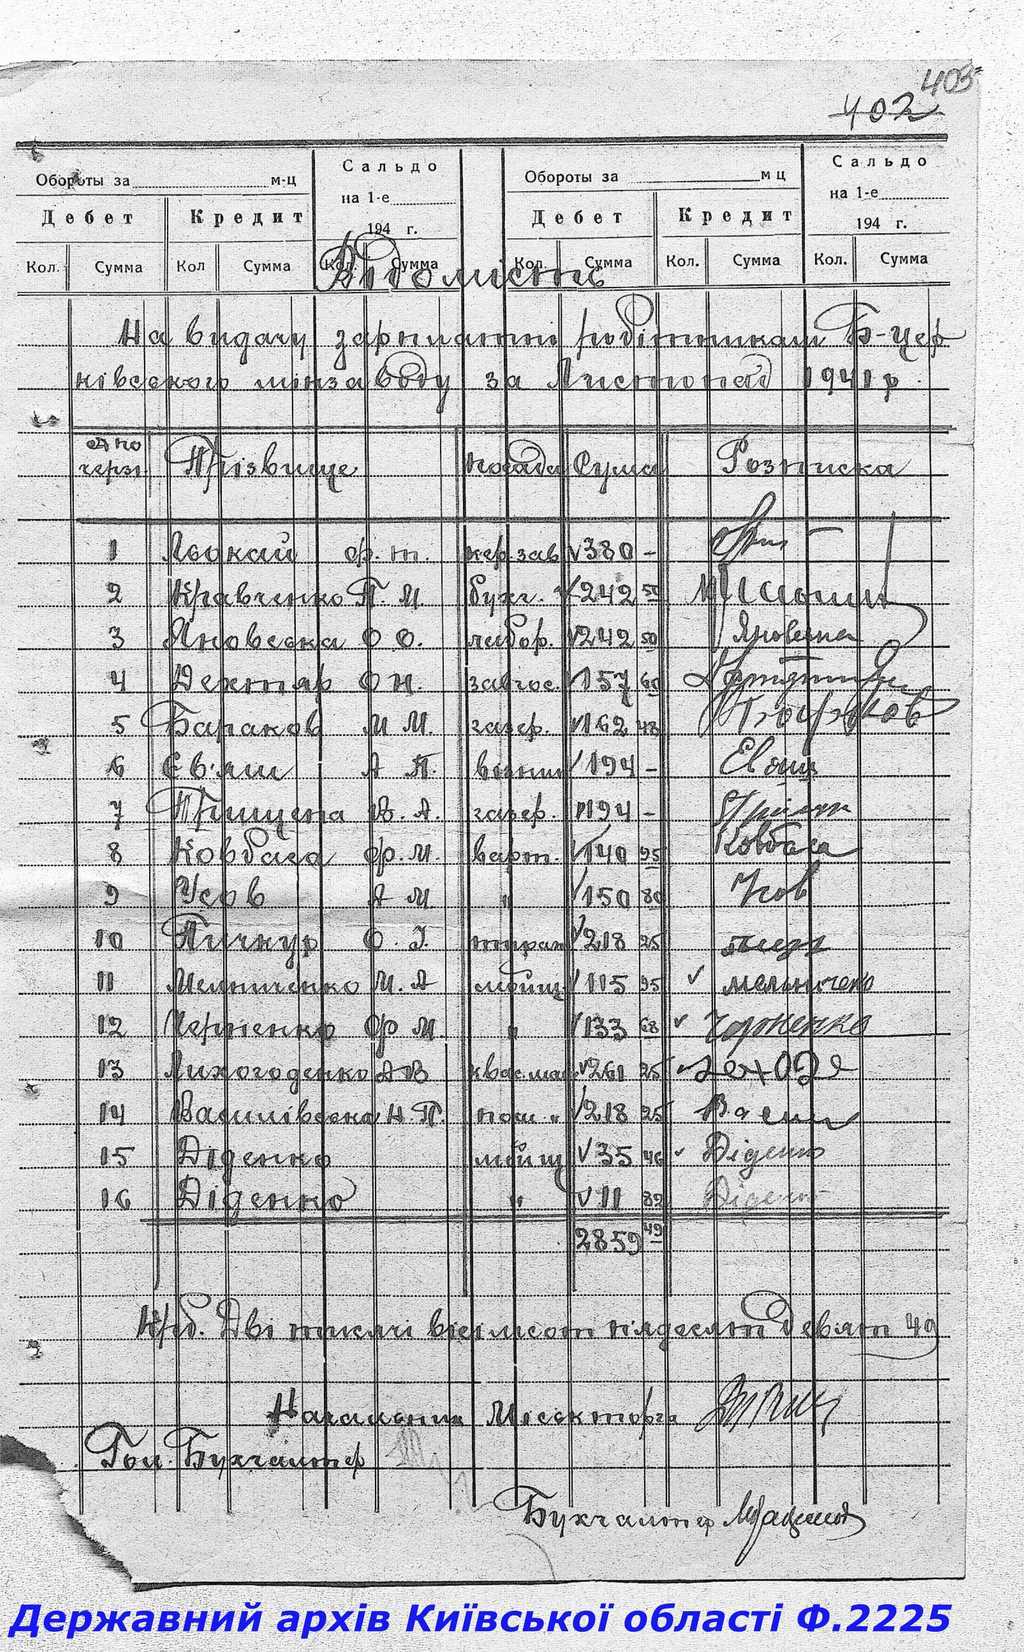 403
402
Обороты за м-ц Сальдо на 1-е 194 г. Обороты за м ц Сальдо на 1-е 194 г.
Дебет Кредит Дебет Кредит
Кол. Сумма Кол Сумма Кол. Сумма Кол. Сумма Кол. Сумма Кол. Сумма
Відомість
На видачу зарплатні робітникам Б-Цер
ківського мінзаводу за Листопад 1941 р.
черзі Прізвище Посада Сума Розписка
1 Льокай Ф. Т. кер.зав 380 –
2 Кравченко П. М. бухг. 242 50
3 Яновська О О. лабор. 242 50 Яновська
4 Дехтяр О Н. завгос. 157 60
5 Баранов М М. газер. 162 48
6 Єв'яш А П. 194 –
7 Грищена В. А. газер. 194 –
8 Ковбаса Ф. М. варт. 140 95 Ковбаса
9 Усов А М " 150 80 Усов
10 Пичкур О. І. 218 25
11 Мельниченко М. А мойщ 115 95 мельниченко
12 Черненко Ф М. " 133 68 Черненко
13 Лихогоденко А В квас.май 261 25
14 Василівська Н П. пом. " 218 25 Васил
15 Діденко мойщ 35 46 Діденко
16 Діденко " 11 82 Діденко
2859 49
Крб. Дві тисячі вісімсот п'ядесят девять 49
Начальник Міськторга
Гол. Бухгалтер
Бухгалтер
Державний архів Київської області Ф.2225